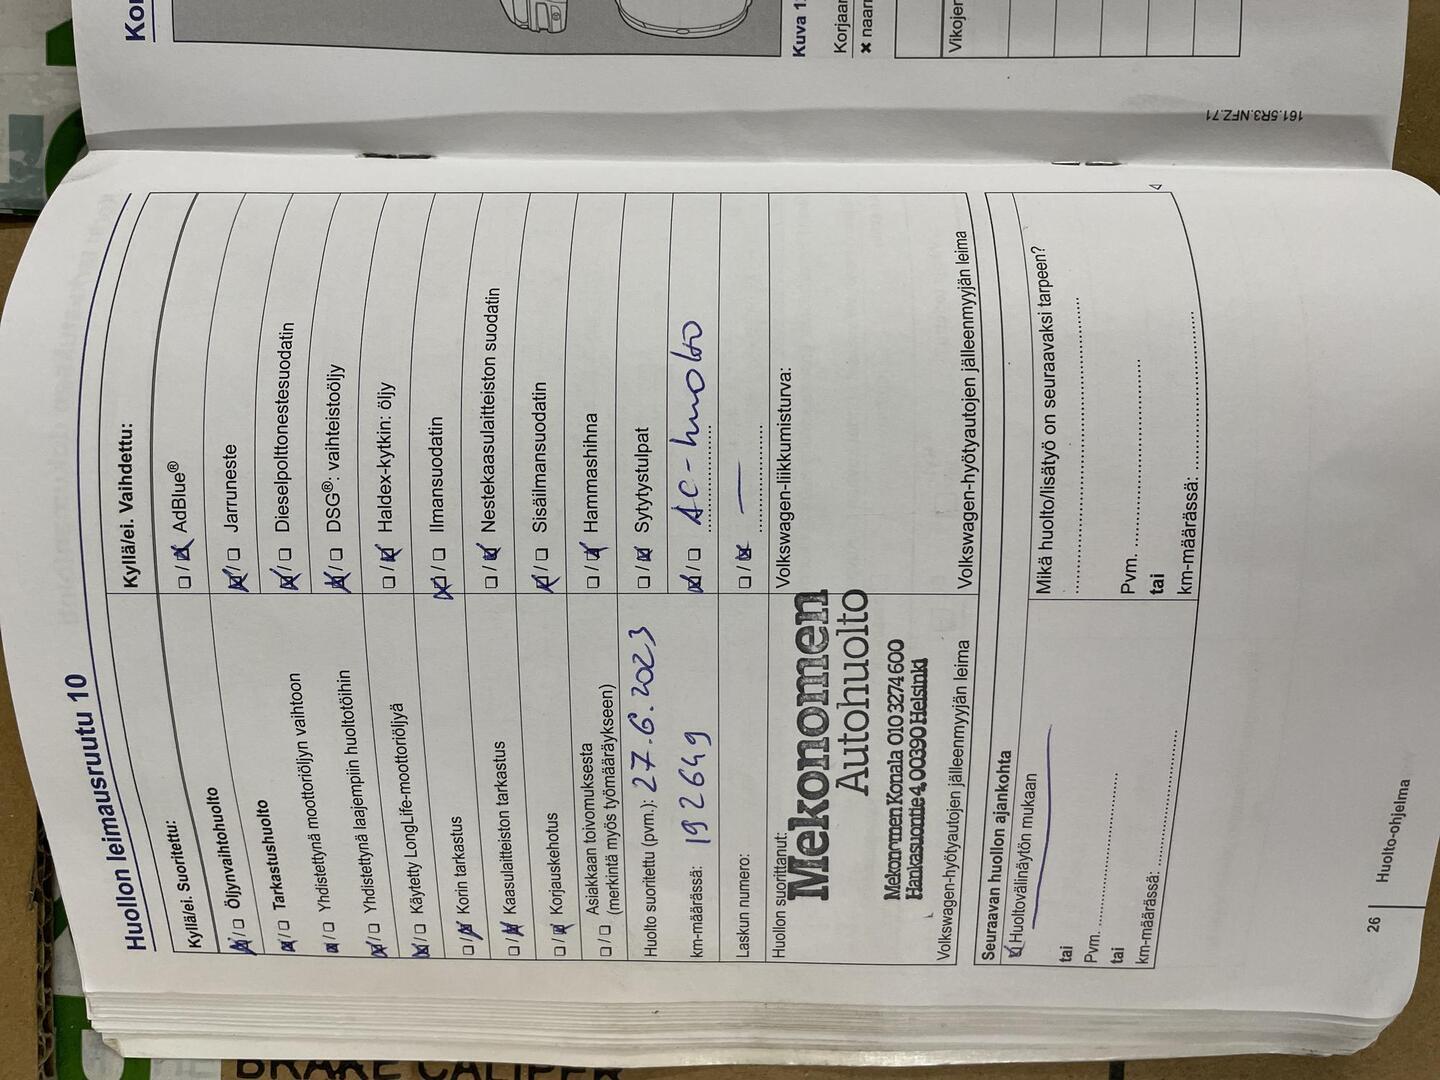 Kor
Kuva 1
Korjaar
✖ naarn
Vikojer
161.5R3.NFZ.71
Huollon leimausruutu 10
Kyllä/ei. Suoritettu:
☒/☐ Öljynvaihtohuolto
☒/☐ Tarkastushuolto
☒/☐ Yhdistettynä moottoriöljyn vaihtoon
☒/☐ Yhdistettynä laajempiin huoltotöihin
☒/☐ Käytetty LongLife-moottoriöljyä
☐/☒ Korin tarkastus
☐/☒ Kaasulaitteiston tarkastus
☐/☒ Korjauskehotus
☐/☐ Asiakkaan toivomuksesta
(merkintä myös työmääräykseen)
Huolto suoritettu (pvm.): 27.6.2023
km-määrässä: 192649
Laskun numero:
Huollon suorittanut:
Mekonomen
Autohuolto
Mekonomen Konala 010 3274 600
Hankasuontie 4, 00390 Helsinki
Volkswagen-hyötyautojen jälleenmyyjän leima
Kyllä/ei. Vaihdettu:
☐/☒ AdBlue®
☒/☐ Jarruneste
☒/☐ Dieselpolttonestesuodatin
☒/☐ DSG®: vaihteistoöljy
☐/☒ Haldex-kytkin: öljy
☒/☐ Ilmansuodatin
☐/☒ Nestekaasulaitteiston suodatin
☒/☐ Sisäilmansuodatin
☐/☒ Hammashihna
☐/☒ Sytytystulpat
☒/☐ AC-huolto
☐/☒ —
Volkswagen-liikkumisturva:
Volkswagen-hyötyautojen jälleenmyyjän leima
Seuraavan huollon ajankohta
☒ Huoltovälinäytön mukaan
tai
Pvm. ........................
tai
km-määrässä: ........................
Mikä huolto/lisätyö on seuraavaksi tarpeen?
........................
Pvm. ........................
tai
km-määrässä: ........................
26
Huolto-ohjelma
BRAKE CALIPER